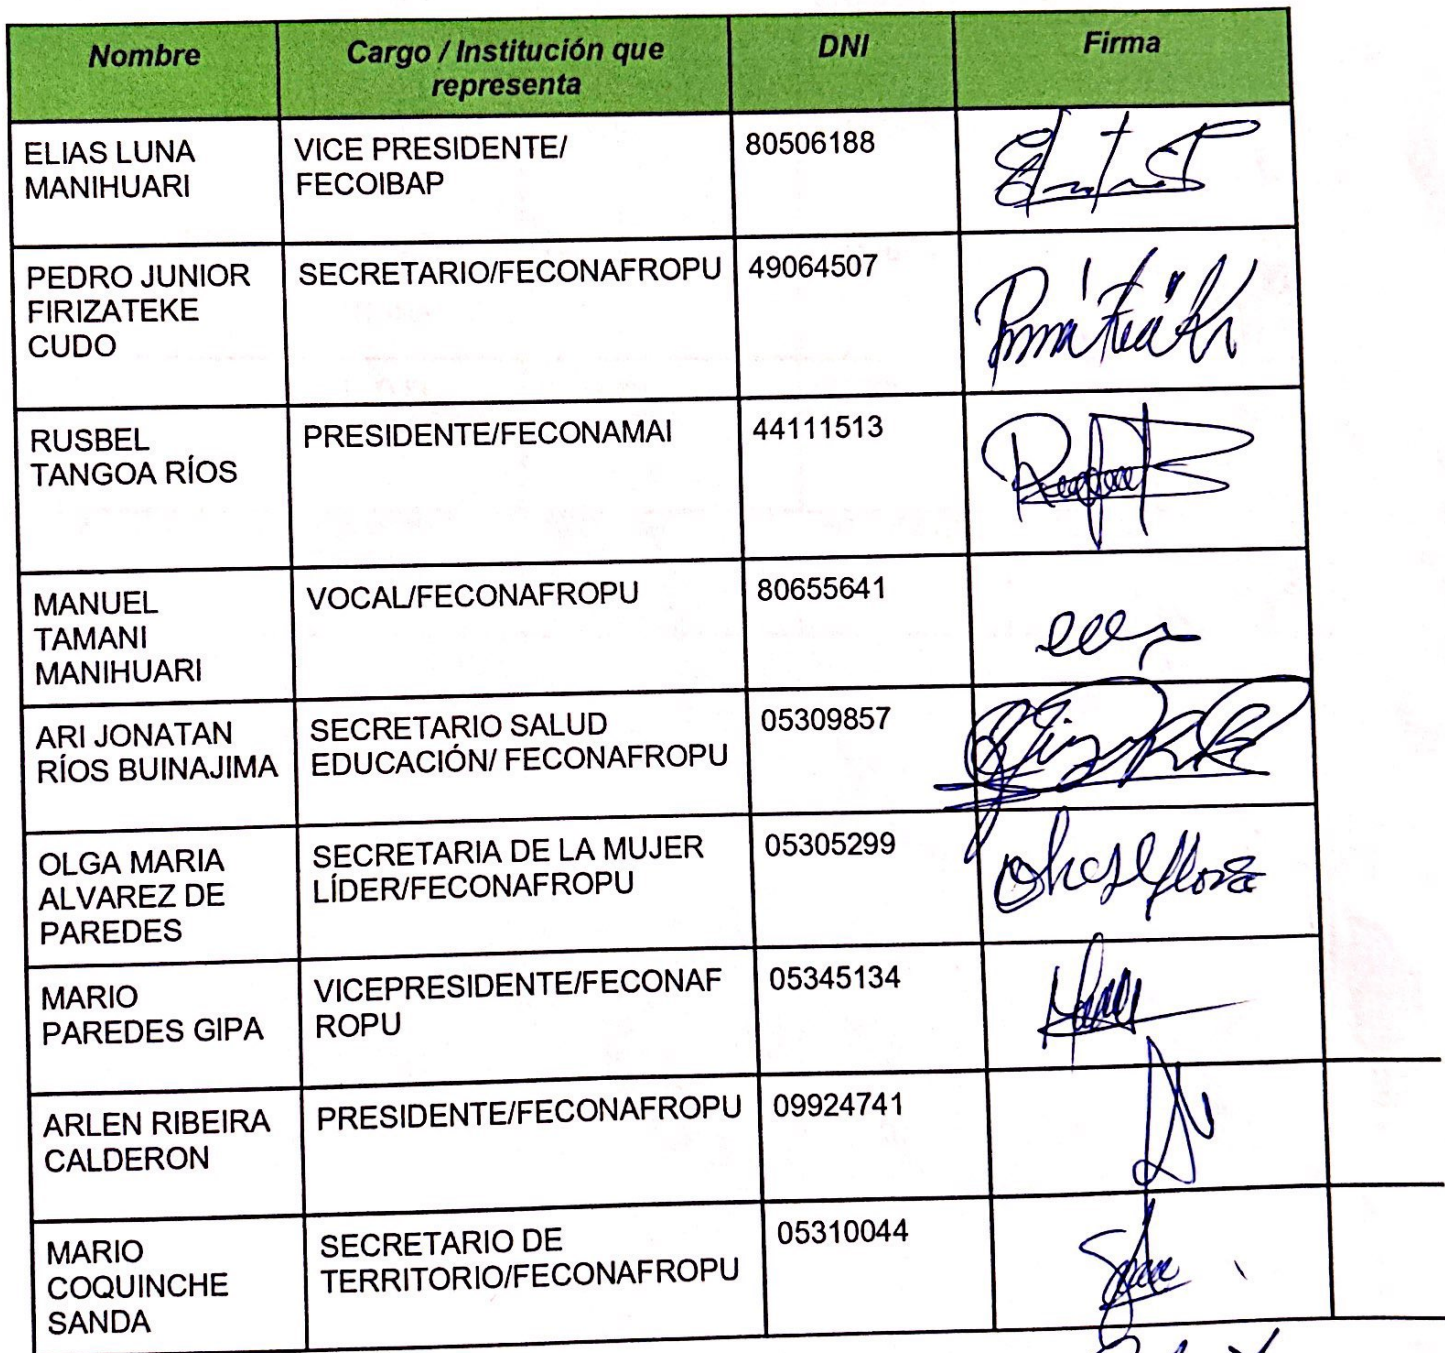 Nombre
Cargo / Institución que
representa
DNI
Firma
ELIAS LUNA
MANIHUARI
VICE PRESIDENTE/
FECOIBAP
80506188
PEDRO JUNIOR
FIRIZATEKE
CUDO
SECRETARIO/FECONAFROPU
49064507
RUSBEL
TANGOA RÍOS
PRESIDENTE/FECONAMAI
44111513
MANUEL
TAMANI
MANIHUARI
VOCAL/FECONAFROPU
80655641
ARI JONATAN
RÍOS BUINAJIMA
SECRETARIO SALUD
EDUCACIÓN/ FECONAFROPU
05309857
OLGA MARIA
ALVAREZ DE
PAREDES
SECRETARIA DE LA MUJER
LÍDER/FECONAFROPU
05305299
MARIO
PAREDES GIPA
VICEPRESIDENTE/FECONAF
ROPU
05345134
ARLEN RIBEIRA
CALDERON
PRESIDENTE/FECONAFROPU
09924741
MARIO
COQUINCHE
SANDA
SECRETARIO DE
TERRITORIO/FECONAFROPU
05310044